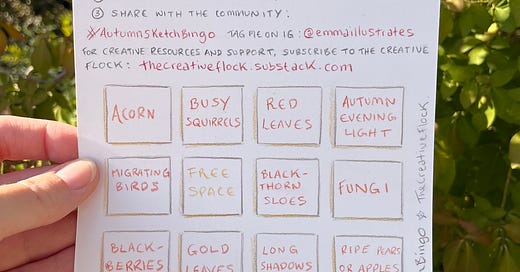 ③ SHARE WITH THE COMMUNITY:
#AutumnSketchBingo TAG ME ON IG: @emmaillustrates
FOR CREATIVE RESOURCES AND SUPPORT, SUBSCRIBE TO THE CREATIVE
FLOCK: thecreativeflock.substack.com
ACORN
BUSY
SQUIRRELS
RED
LEAVES
AUTUMN
EVENING
LIGHT
MIGRATING
BIRDS
FREE
SPACE
BLACK-
THORN
SLOES
FUNGI
BLACK-
BERRIES
GOLD
LEAVES
LONG
SHADOWS
RIPE PEARS
OR APPLES
Bingo # TheCreativeFlock